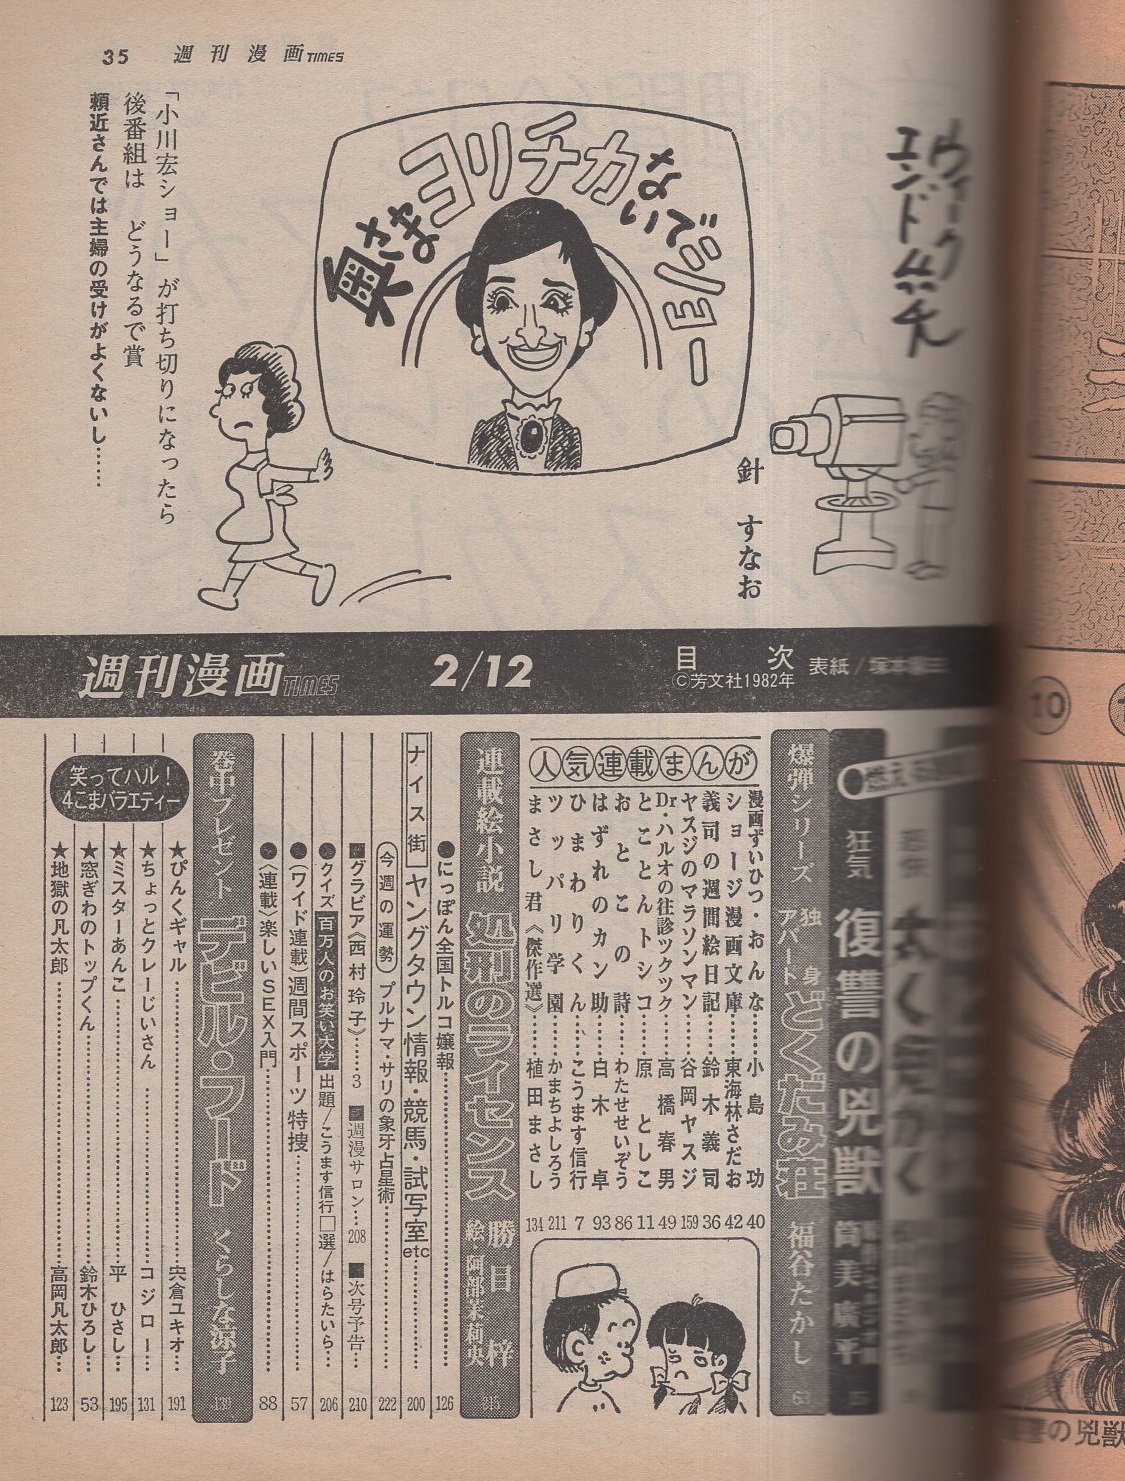 35 週刊漫画TIMES
ウィーク
エンドムチ
「小川宏ショー」が打ち切りになったら
後番組は どうなるで賞
頼近さんでは主婦の受けがよくないし……
奥さまヨリチカないでショー
針 すなお
週刊漫画TIMES 2/12 目次 表紙/塚本
©芳文社1982年
狂気 復讐の凶獣
筒美廣平
爆弾シリーズ 独身アパート どくだみ荘 福谷たかし 63
人気連載まんが
漫画ずいひつ・おんな……小島功 40
ショージ漫画文庫……東海林さだお 42
義司の週間絵日記……鈴木義司 36
ヤスジのマラソンマン……谷岡ヤスジ 159
Dr・ハルオの往診ツクツク……高橋春男 49
とことんトシコ……原としこ 11
おとこの詩……わたせせいぞう 86
はずれのカン助……白木卓 93
ひまわりくん……こうます信行 7
ツッパリ学園……かまちよしろう 211
まさし君《傑作選》……植田まさし 134
連載絵小説 処刑のライセンス 勝目梓 絵・阿部茉莉央 215
●にっぽん全国トルコ嬢報……126
ナイス街 ヤングタウン情報・競馬・試写室etc……200
今週の運勢 プルナマ・サリの象牙占星術……222
■グラビア《西村玲子》……3 ■週漫サロン…208 ■次号予告…210
●クイズ 百万人のお笑い大学 出題/こうます信行□選/はらたいら…206
●《ワイド連載》週間スポーツ特捜……57
●〈連載〉楽しいSEX入門……88
巻中プレゼント デビル・フード くらしな涼子 139
笑ってハル!
4こまバラエティー
★ぴんくギャル……宍倉ユキオ…191
★ちょっとクレーじいさん……コジロー…131
★ミスターあんこ……平ひさし…195
★窓ぎわのトップくん……鈴木ひろし…53
★地獄の凡太郎……高岡凡太郎…123
10
の兇獣